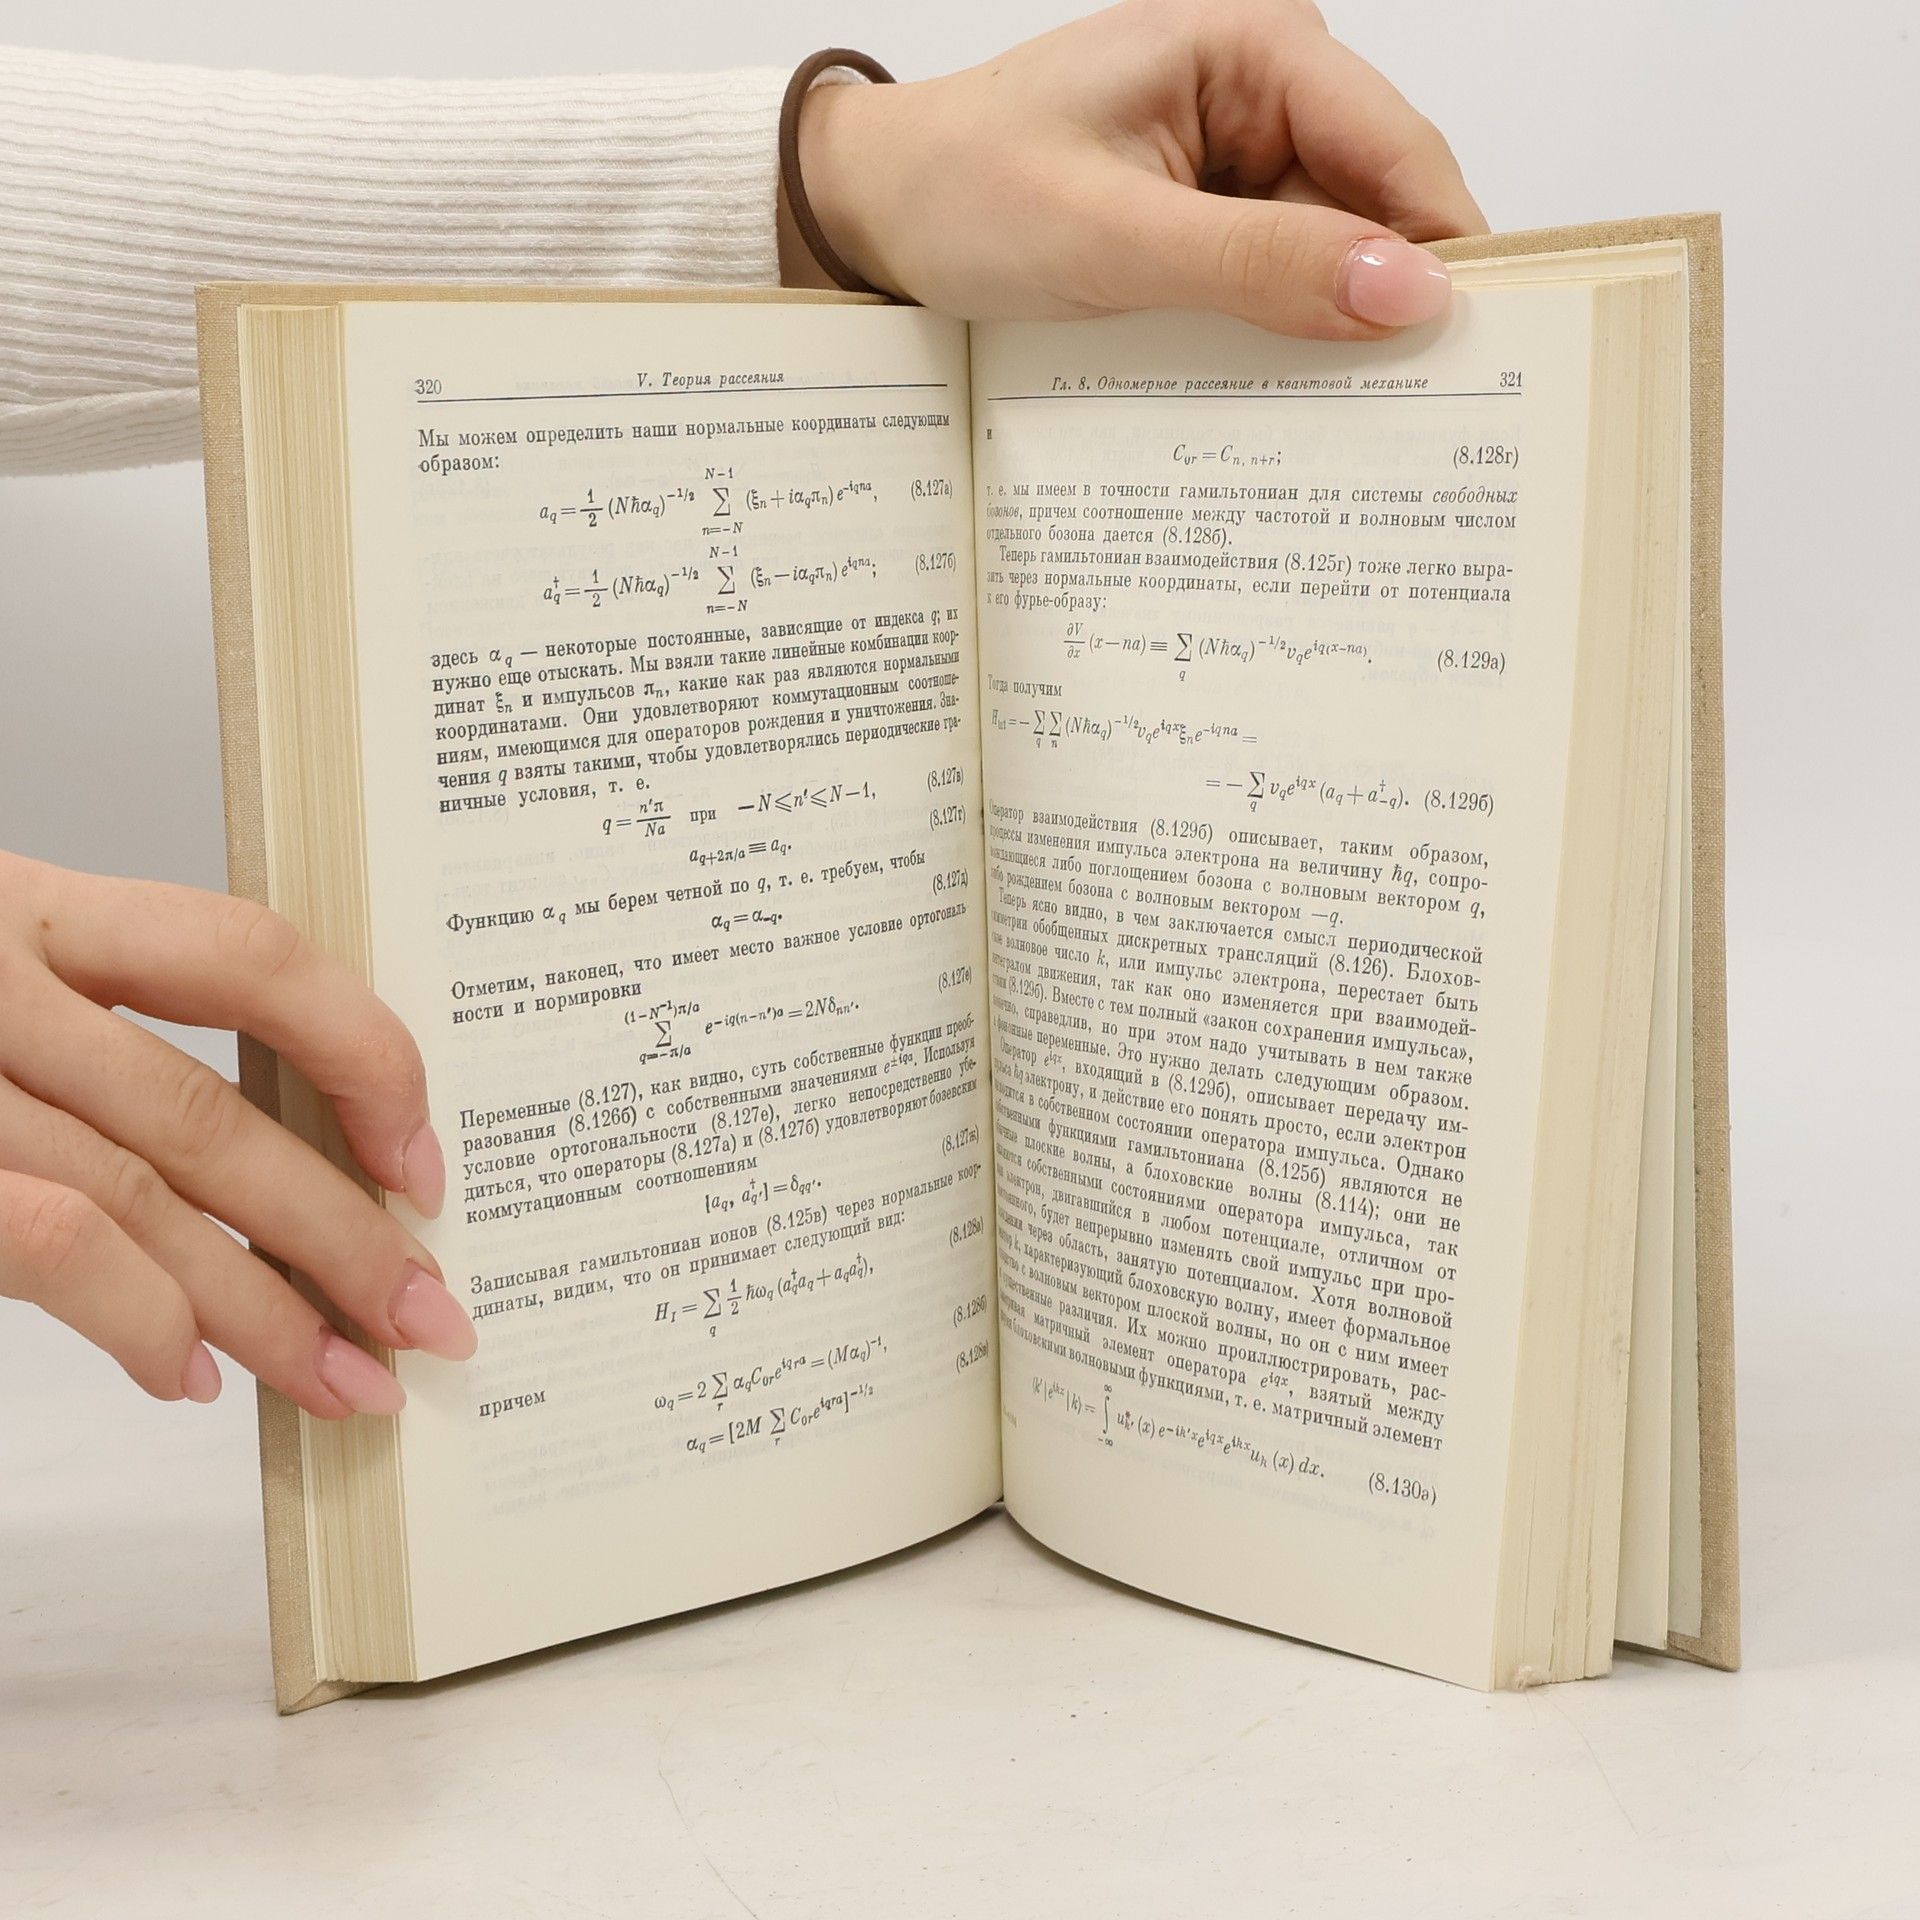 320
V. Теория рассеяния
Мы можем определить наши нормальные координаты следующим
образом:
a_q = 1/2 (Nħα_q)^{-1/2} ∑_{n=-N}^{N-1} (ξ_n + iα_qπ_n) e^{-iqna}, (8.127а)
a_q^† = 1/2 (Nħα_q)^{-1/2} ∑_{n=-N}^{N-1} (ξ_n — iα_qπ_n) e^{iqna}; (8.127б)
здесь α_q — некоторые постоянные, зависящие от индекса q; их
нужно еще отыскать. Мы взяли такие линейные комбинации коор-
динат ξ_n и импульсов π_n, какие как раз являются нормальными
координатами. Они удовлетворяют коммутационным соотноше-
ниям, имеющимся для операторов рождения и уничтожения. Зна-
чения q взяты такими, чтобы удовлетворялись периодические гра-
ничные условия, т. е.
q = n'π/Na при —N ⩽ n' ⩽ N—1, (8.127в)
a_{q+2π/a} ≡ a_q. (8.127г)
Функцию α_q мы берем четной по q, т. е. требуем, чтобы
α_q = α_{-q}. (8.127д)
Отметим, наконец, что имеет место важное условие ортогональ
ности и нормировки
∑_{q=-π/a}^{(1-N^{-1})π/a} e^{-iq(n-n')a} = 2Nδ_{nn'}. (8.127е)
Переменные (8.127), как видно, суть собственные функции преоб-
разования (8.126б) с собственными значениями e^{±iqa}. Используя
условие ортогональности (8.127е), легко непосредственно убе-
диться, что операторы (8.127а) и (8.127б) удовлетворяют бозевским
коммутационным соотношениям
[a_q, a_{q'}^†] = δ_{qq'}. (8.127ж)
Записывая гамильтониан ионов (8.125в) через нормальные коор-
динаты, видим, что он принимает следующий вид:
H_I = ∑_q 1/2 ħω_q (a_q^† a_q + a_q a_q^†), (8.128а)
причем ω_q = 2 ∑_r α_q C_{0r} e^{iqra} = (Mα_q)^{-1}, (8.128б)
α_q = [2M ∑_r C_{0r} e^{iqra}]^{-1/2} (8.128в)
Гл. 8. Одномерное рассеяние в квантовой механике
321
и
C_{0r} = C_{n, n+r}; (8.128г)
т. е. мы имеем в точности гамильтониан для системы свободных
бозонов, причем соотношение между частотой и волновым числом
отдельного бозона дается (8.128б).
Теперь гамильтониан взаимодействия (8.125г) тоже легко выра-
зить через нормальные координаты, если перейти от потенциала
к его фурье-образу:
∂V/∂x (x—na) ≡ ∑_q (Nħα_q)^{-1/2} v_q e^{iq(x-na)}. (8.129а)
Тогда получим
H_{int} = — ∑_q ∑_n (Nħα_q)^{-1/2} v_q e^{iqx} ξ_n e^{-iqna} =
= — ∑_q v_q e^{iqx} (a_q + a_{-q}^†). (8.129б)
Оператор взаимодействия (8.129б) описывает, таким образом,
процессы изменения импульса электрона на величину ħq, сопро-
вождающиеся либо поглощением бозона с волновым вектором q,
либо рождением бозона с волновым вектором —q.
Теперь ясно видно, в чем заключается смысл периодической
симметрии обобщенных дискретных трансляций (8.126). Блохов-
ское волновое число k, или импульс электрона, перестает быть
интегралом движения, так как оно изменяется при взаимодей-
ствии (8.129б). Вместе с тем полный «закон сохранения импульса»,
конечно, справедлив, но при этом надо учитывать в нем также
и фононные переменные. Это нужно делать следующим образом.
Оператор e^{iqx}, входящий в (8.129б), описывает передачу им-
пульса ħq электрону, и действие его понять просто, если электрон
находится в собственном состоянии оператора импульса. Однако
собственными функциями гамильтониана (8.125б) являются не
обычные плоские волны, а блоховские волны (8.114); они не
являются собственными состояниями оператора импульса, так
как электрон, двигавшийся в любом потенциале, отличном от
постоянного, будет непрерывно изменять свой импульс при про-
хождении через область, занятую потенциалом. Хотя волновой
вектор k, характеризующий блоховскую волну, имеет формальное
сходство с волновым вектором плоской волны, но он с ним имеет
и существенные различия. Их можно проиллюстрировать, рас-
сматривая матричный элемент оператора e^{iqx}, взятый между
двумя блоховскими волновыми функциями, т. е. матричный элемент
⟨k' | e^{ikx} | k⟩ = ∫_{-∞}^{∞} u_{k'}^* (x) e^{-ik'x} e^{iqx} e^{ikx} u_k (x) dx. (8.130а)